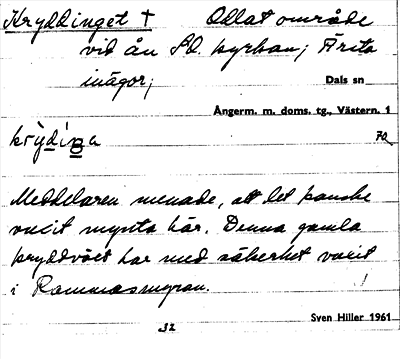 Kryddinget † Odlat område
vid ån Sö. kyrkan; Ärtta
inägor;
Dals sn
Ångerm. m. doms. tg., Västern. 1
krydiŋa 70
Meddelaren menade, att det kanske
vuxit mynta här. Denna gamla
kryddväxt har med säkerhet vuxit
i Rammåsmyran.
Sven Hiller 1961
32